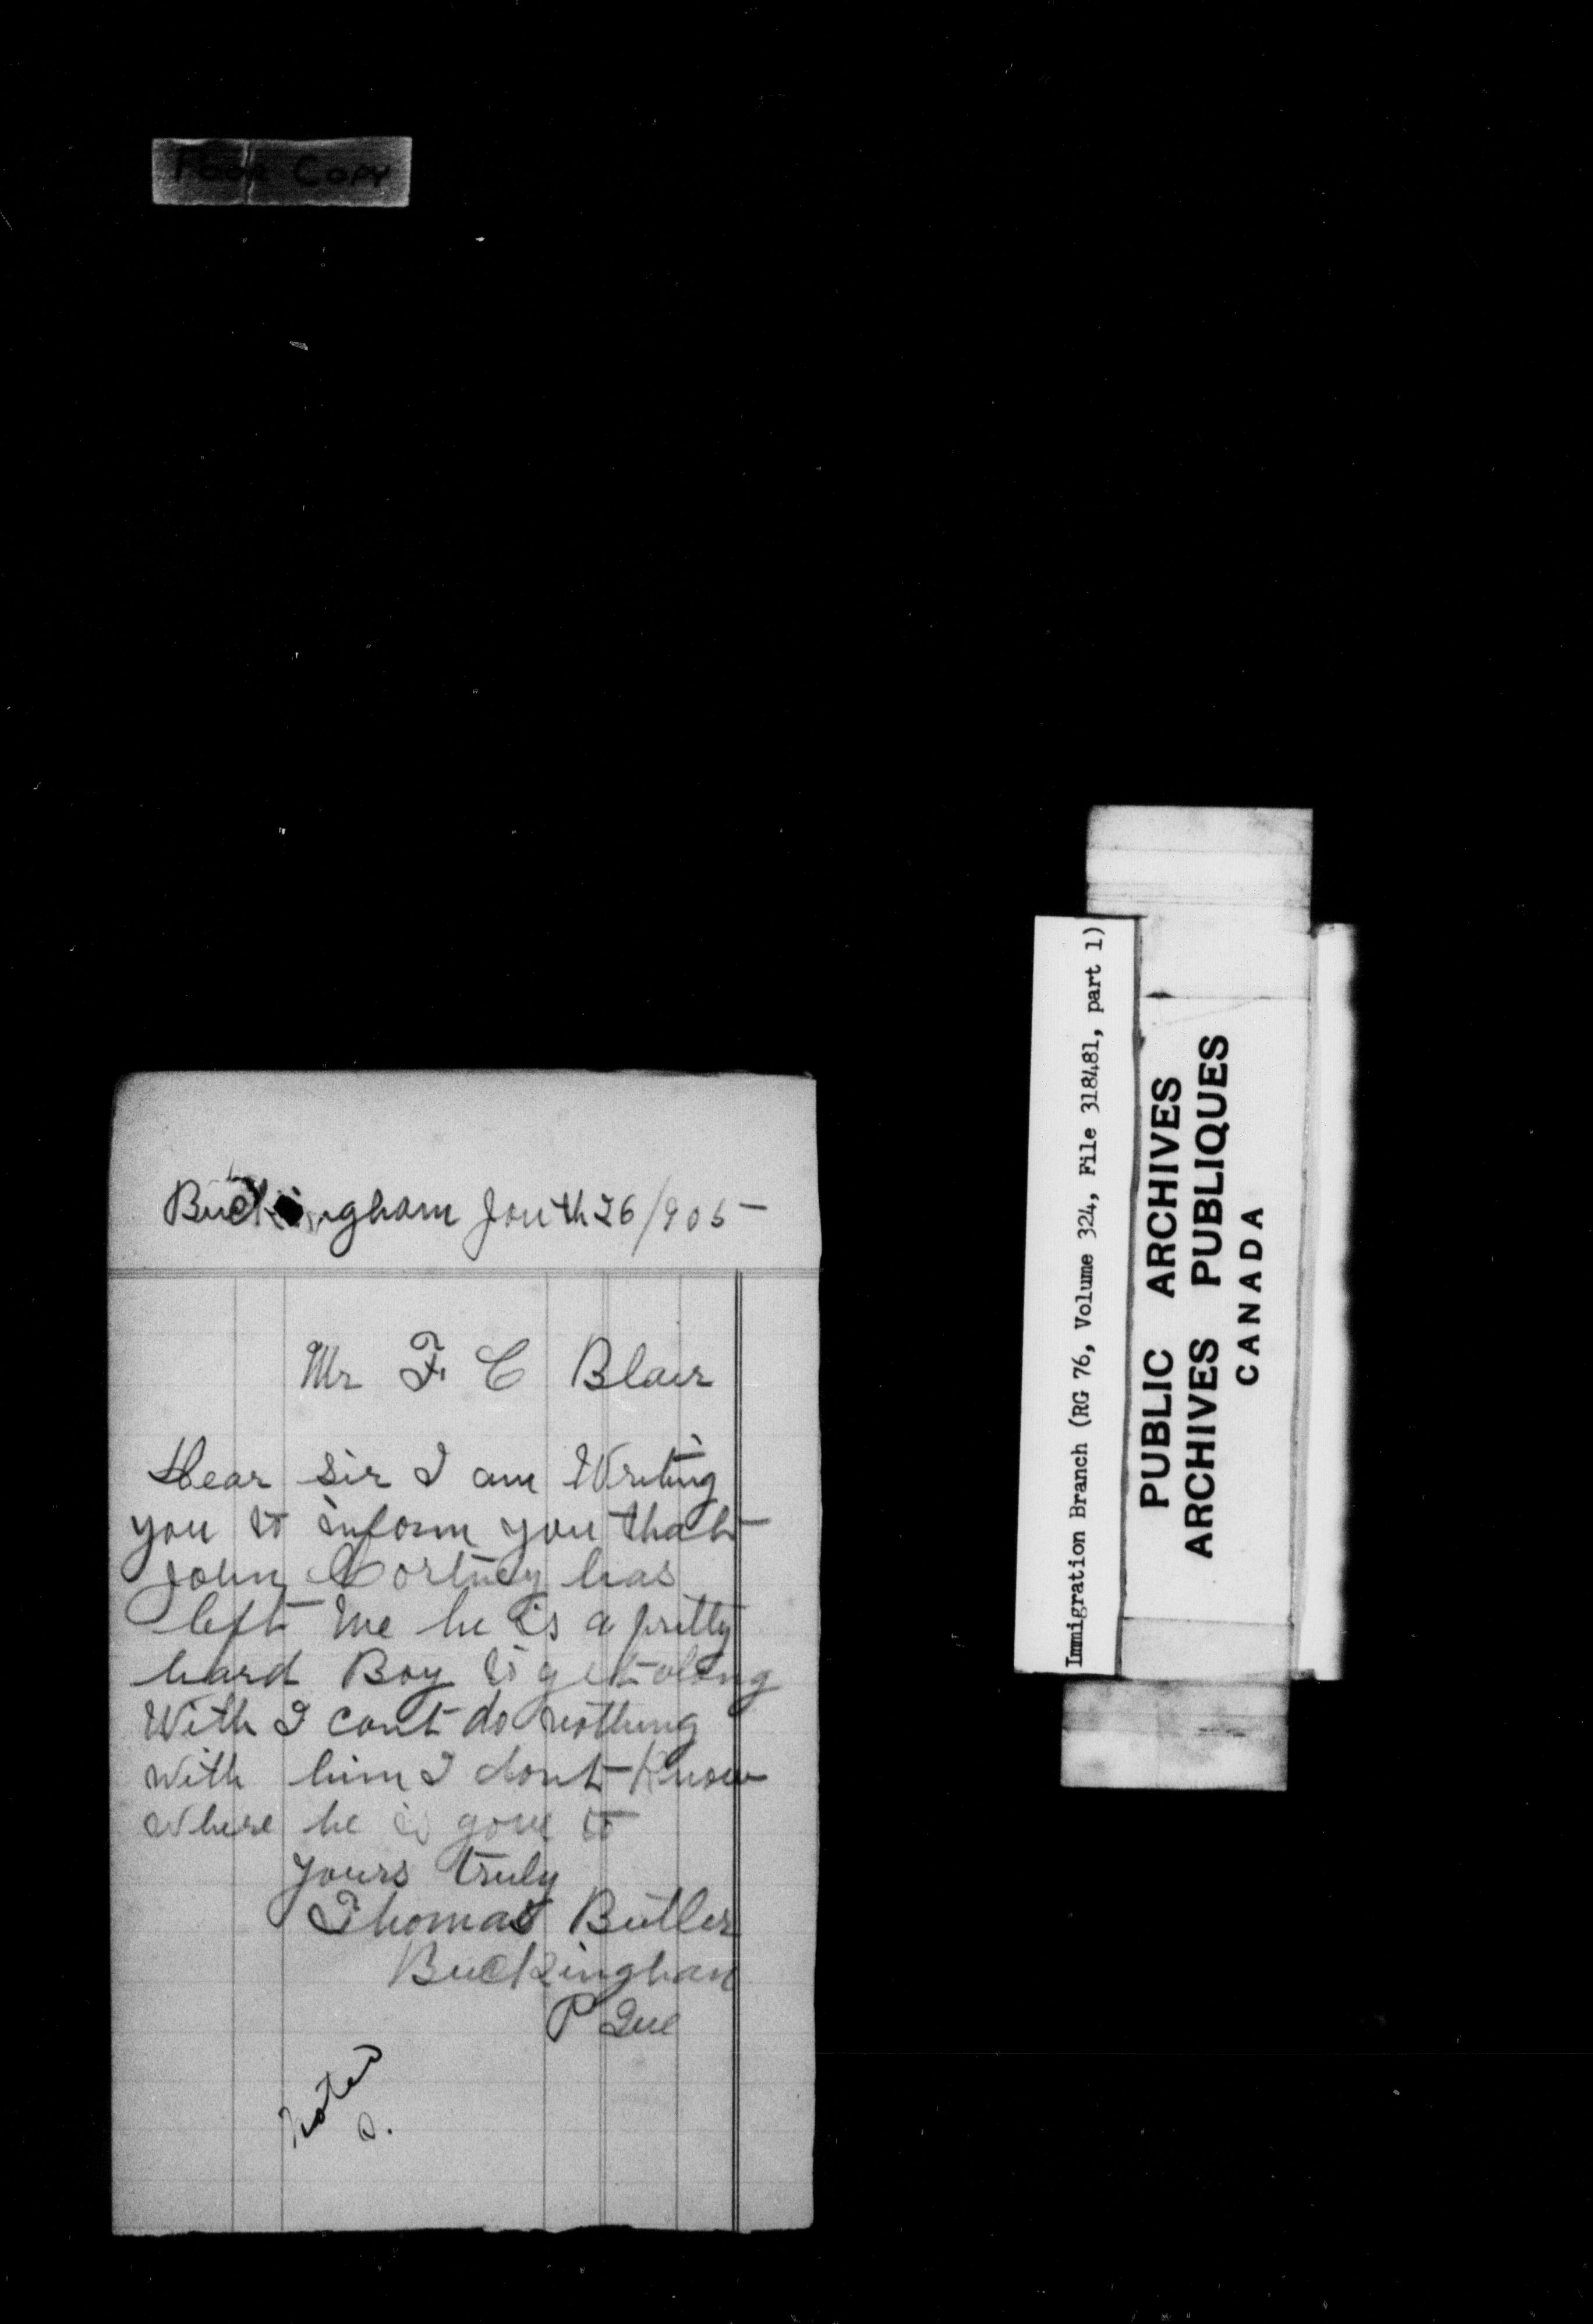 Poor Copy
Buckingham Jan th 26/905
Mr F. C Blair
Dear Sir I am Writing
you to inform you that
John Cortney has
left me he is a pretty
hard Boy to get along
With I cant do nothing
with him I dont Know
where he is gone to
yours truly
Thomas Butler
Buckingham
P Que
Noted
Immigration Branch (RG 76, Volume 324, File 318481, part 1)
PUBLIC ARCHIVES
ARCHIVES PUBLIQUES
CANADA